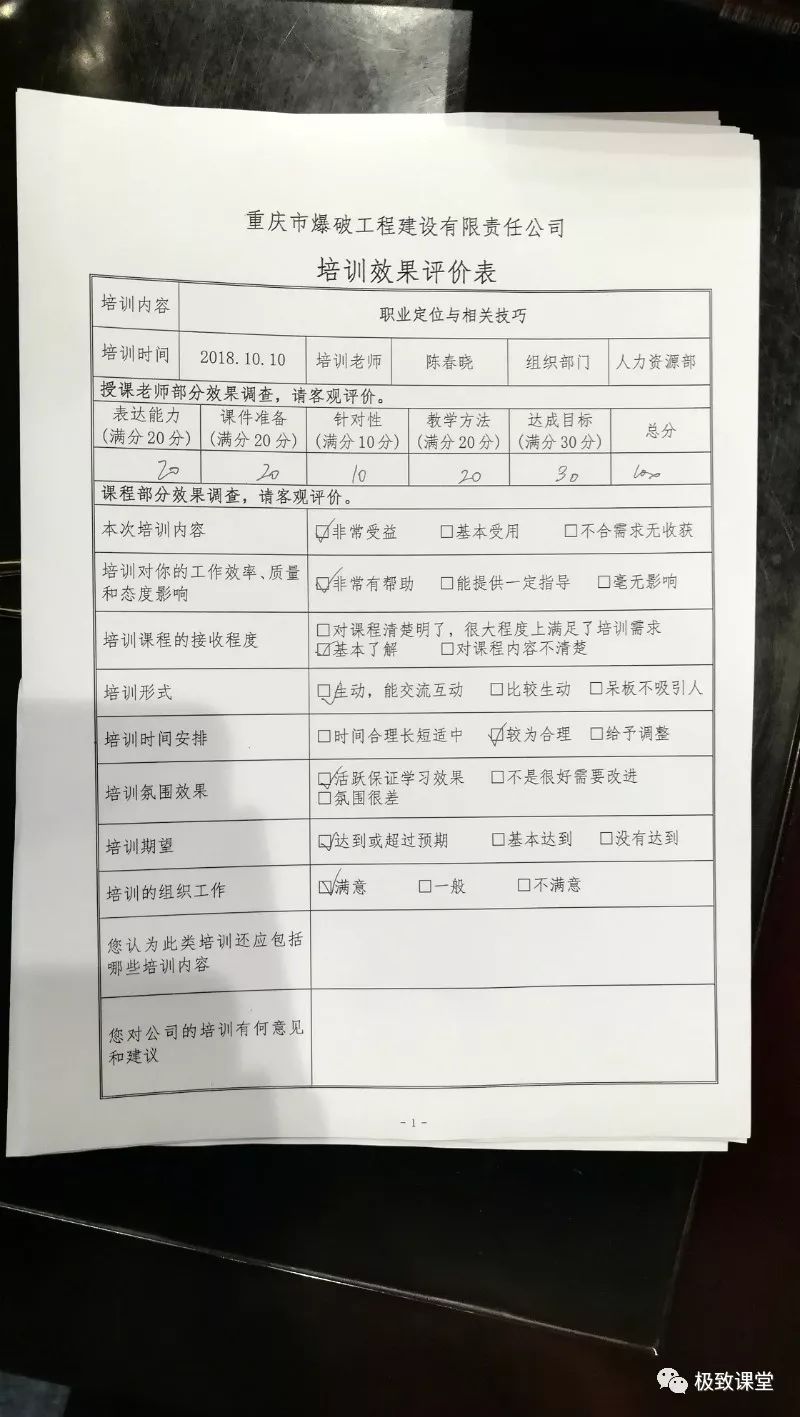 重庆市爆破工程建设有限责任公司
培训效果评价表
培训内容 职业定位与相关技巧
培训时间 2018.10.10 培训老师 陈春晓 组织部门 人力资源部
授课老师部分效果调查，请客观评价。
表达能力 课件准备 针对性 教学方法 达成目标 总分
(满分20分) (满分20分) (满分10分) (满分20分) (满分30分)
20 20 10 20 30 100
课程部分效果调查，请客观评价。
本次培训内容 ☑非常受益 □基本受用 □不合需求无收获
培训对你的工作效率、质量
和态度影响 ☑非常有帮助 □能提供一定指导 □毫无影响
培训课程的接收程度 □对课程清楚明了，很大程度上满足了培训需求
☑基本了解 □对课程内容不清楚
培训形式 ☑生动，能交流互动 □比较生动 □呆板不吸引人
培训时间安排 □时间合理长短适中 ☑较为合理 □给予调整
培训氛围效果 ☑活跃保证学习效果 □不是很好需要改进
□氛围很差
培训期望 ☑达到或超过预期 □基本达到 □没有达到
培训的组织工作 ☑满意 □一般 □不满意
您认为此类培训还应包括
哪些培训内容
您对公司的培训有何意见
和建议
- 1 -
极致课堂